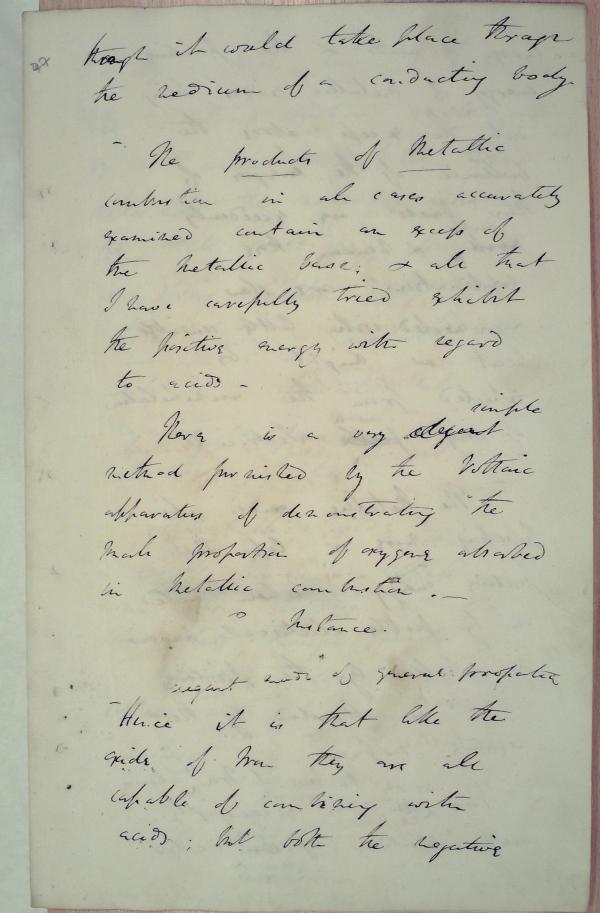 though it would take place through
the medium of a conducting body.
The products of Metallic
combustion in all cases accurately
examined contain an excess of
the Metallic base; & all that
I have carefully tried exhibit
the positive energy with regard
to acids -
simple
There is a very elegant
method furnished by the Voltaic
apparatus of demonstrating the
small proportion of oxygene absorbed
in Metallic combustion. —
Instance.
of general
Hence it is that like the
oxide of Iron they are all
capable of combining with
acids; but both the negative